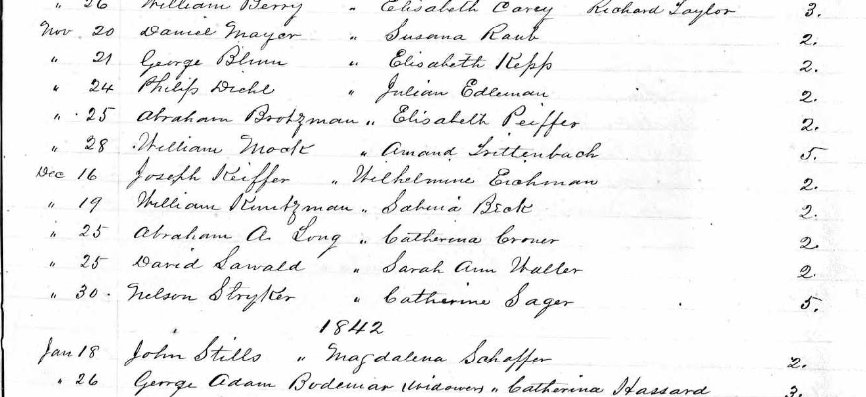 " 26 William Berry " Elisabeth Carey Richard Taylor 3.
Nov 20 Daniel Mayer " Susana Raub 2.
" 21 George Blum " Elisabeth Kepp 2.
" 24 Philip Diehl " Julian Edleman 2.
" 25 Abraham Brotzman " Elisabeth Peiffer 2.
" 28 William Mock " Amand Trittenbach 5.
Dec 16 Joseph Keiffer " Wilhelmine Eichman 2.
" 19 William Kuntzman " Sabina Beck 2.
" 25 Abraham A. Long " Catherina Croner 2
" 25 David Sawald " Sarah Ann Walter 2.
" 30. Nelson Stryker " Catherine Sager 5.
1842
Jan 18 John Stills " Magdalena Schaffer 2.
" 26 George Adam Bodemar (Widower) " Catherina Hassard 3.